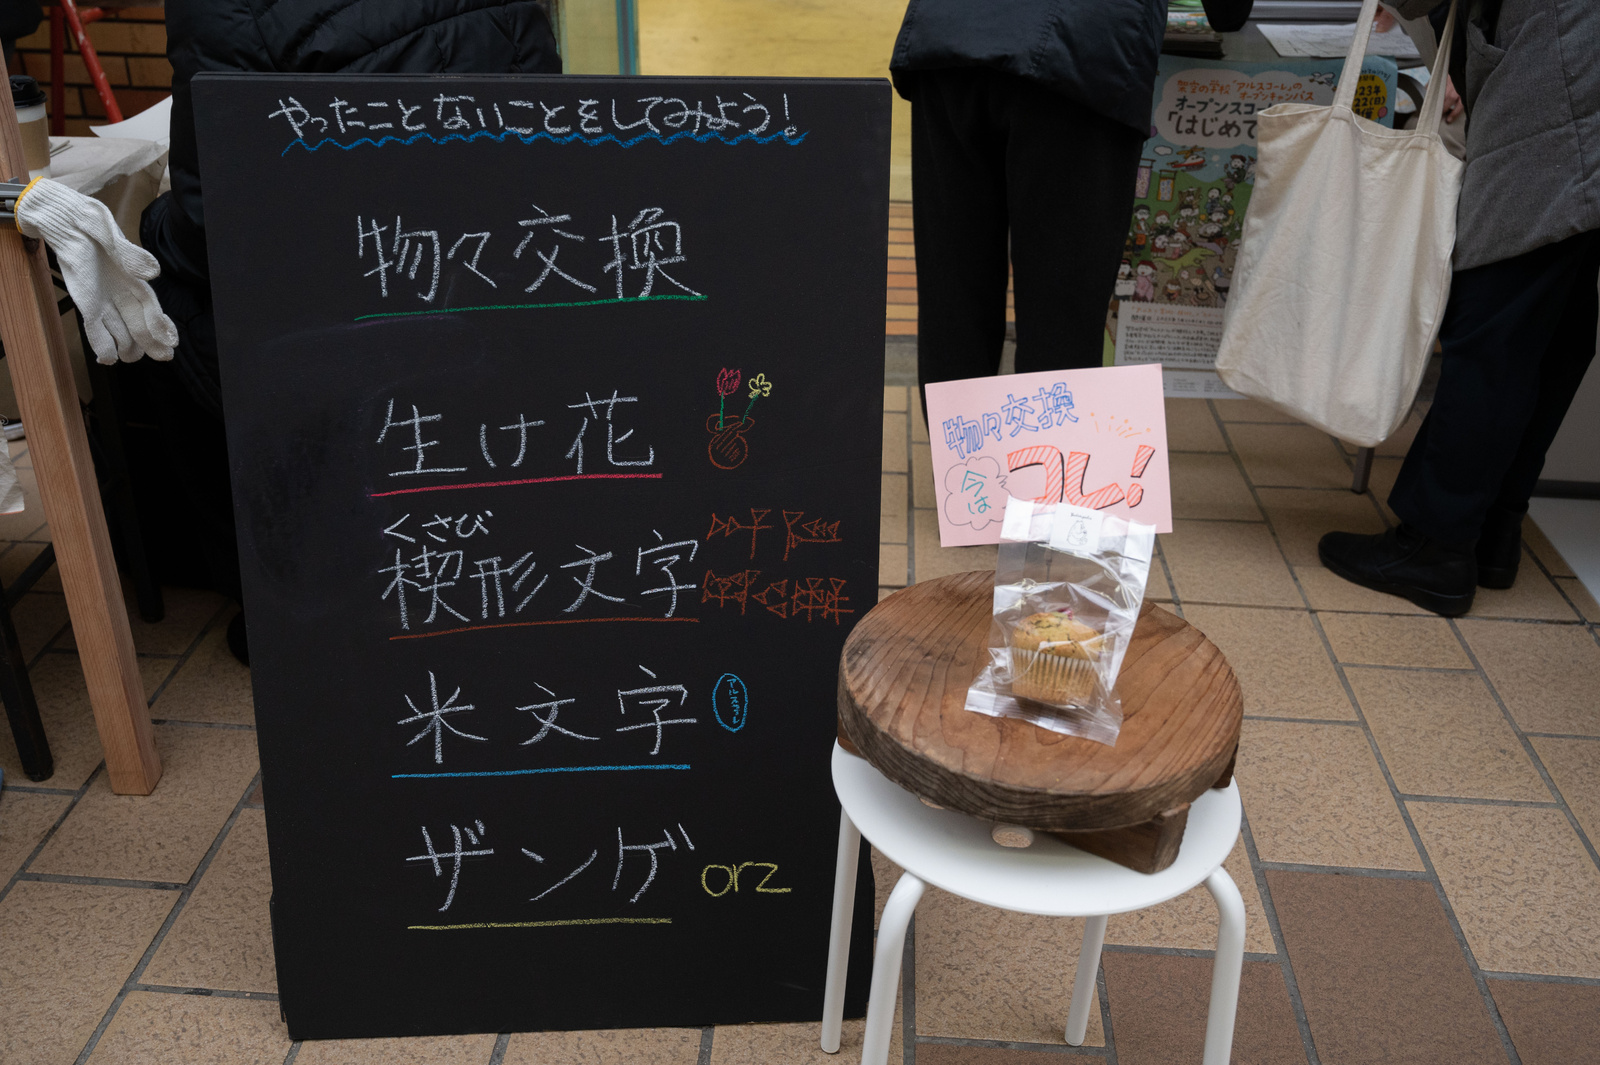 やったことないことをしてみよう!
物々交換
生け花
くさび
楔形文字
米文字
アルスコーレ
ザンゲ orz
物々交換
今は
コレ!
架空の学校「アルスコーレ」の
オープンキャンパス
オープンスコー
「はじめて